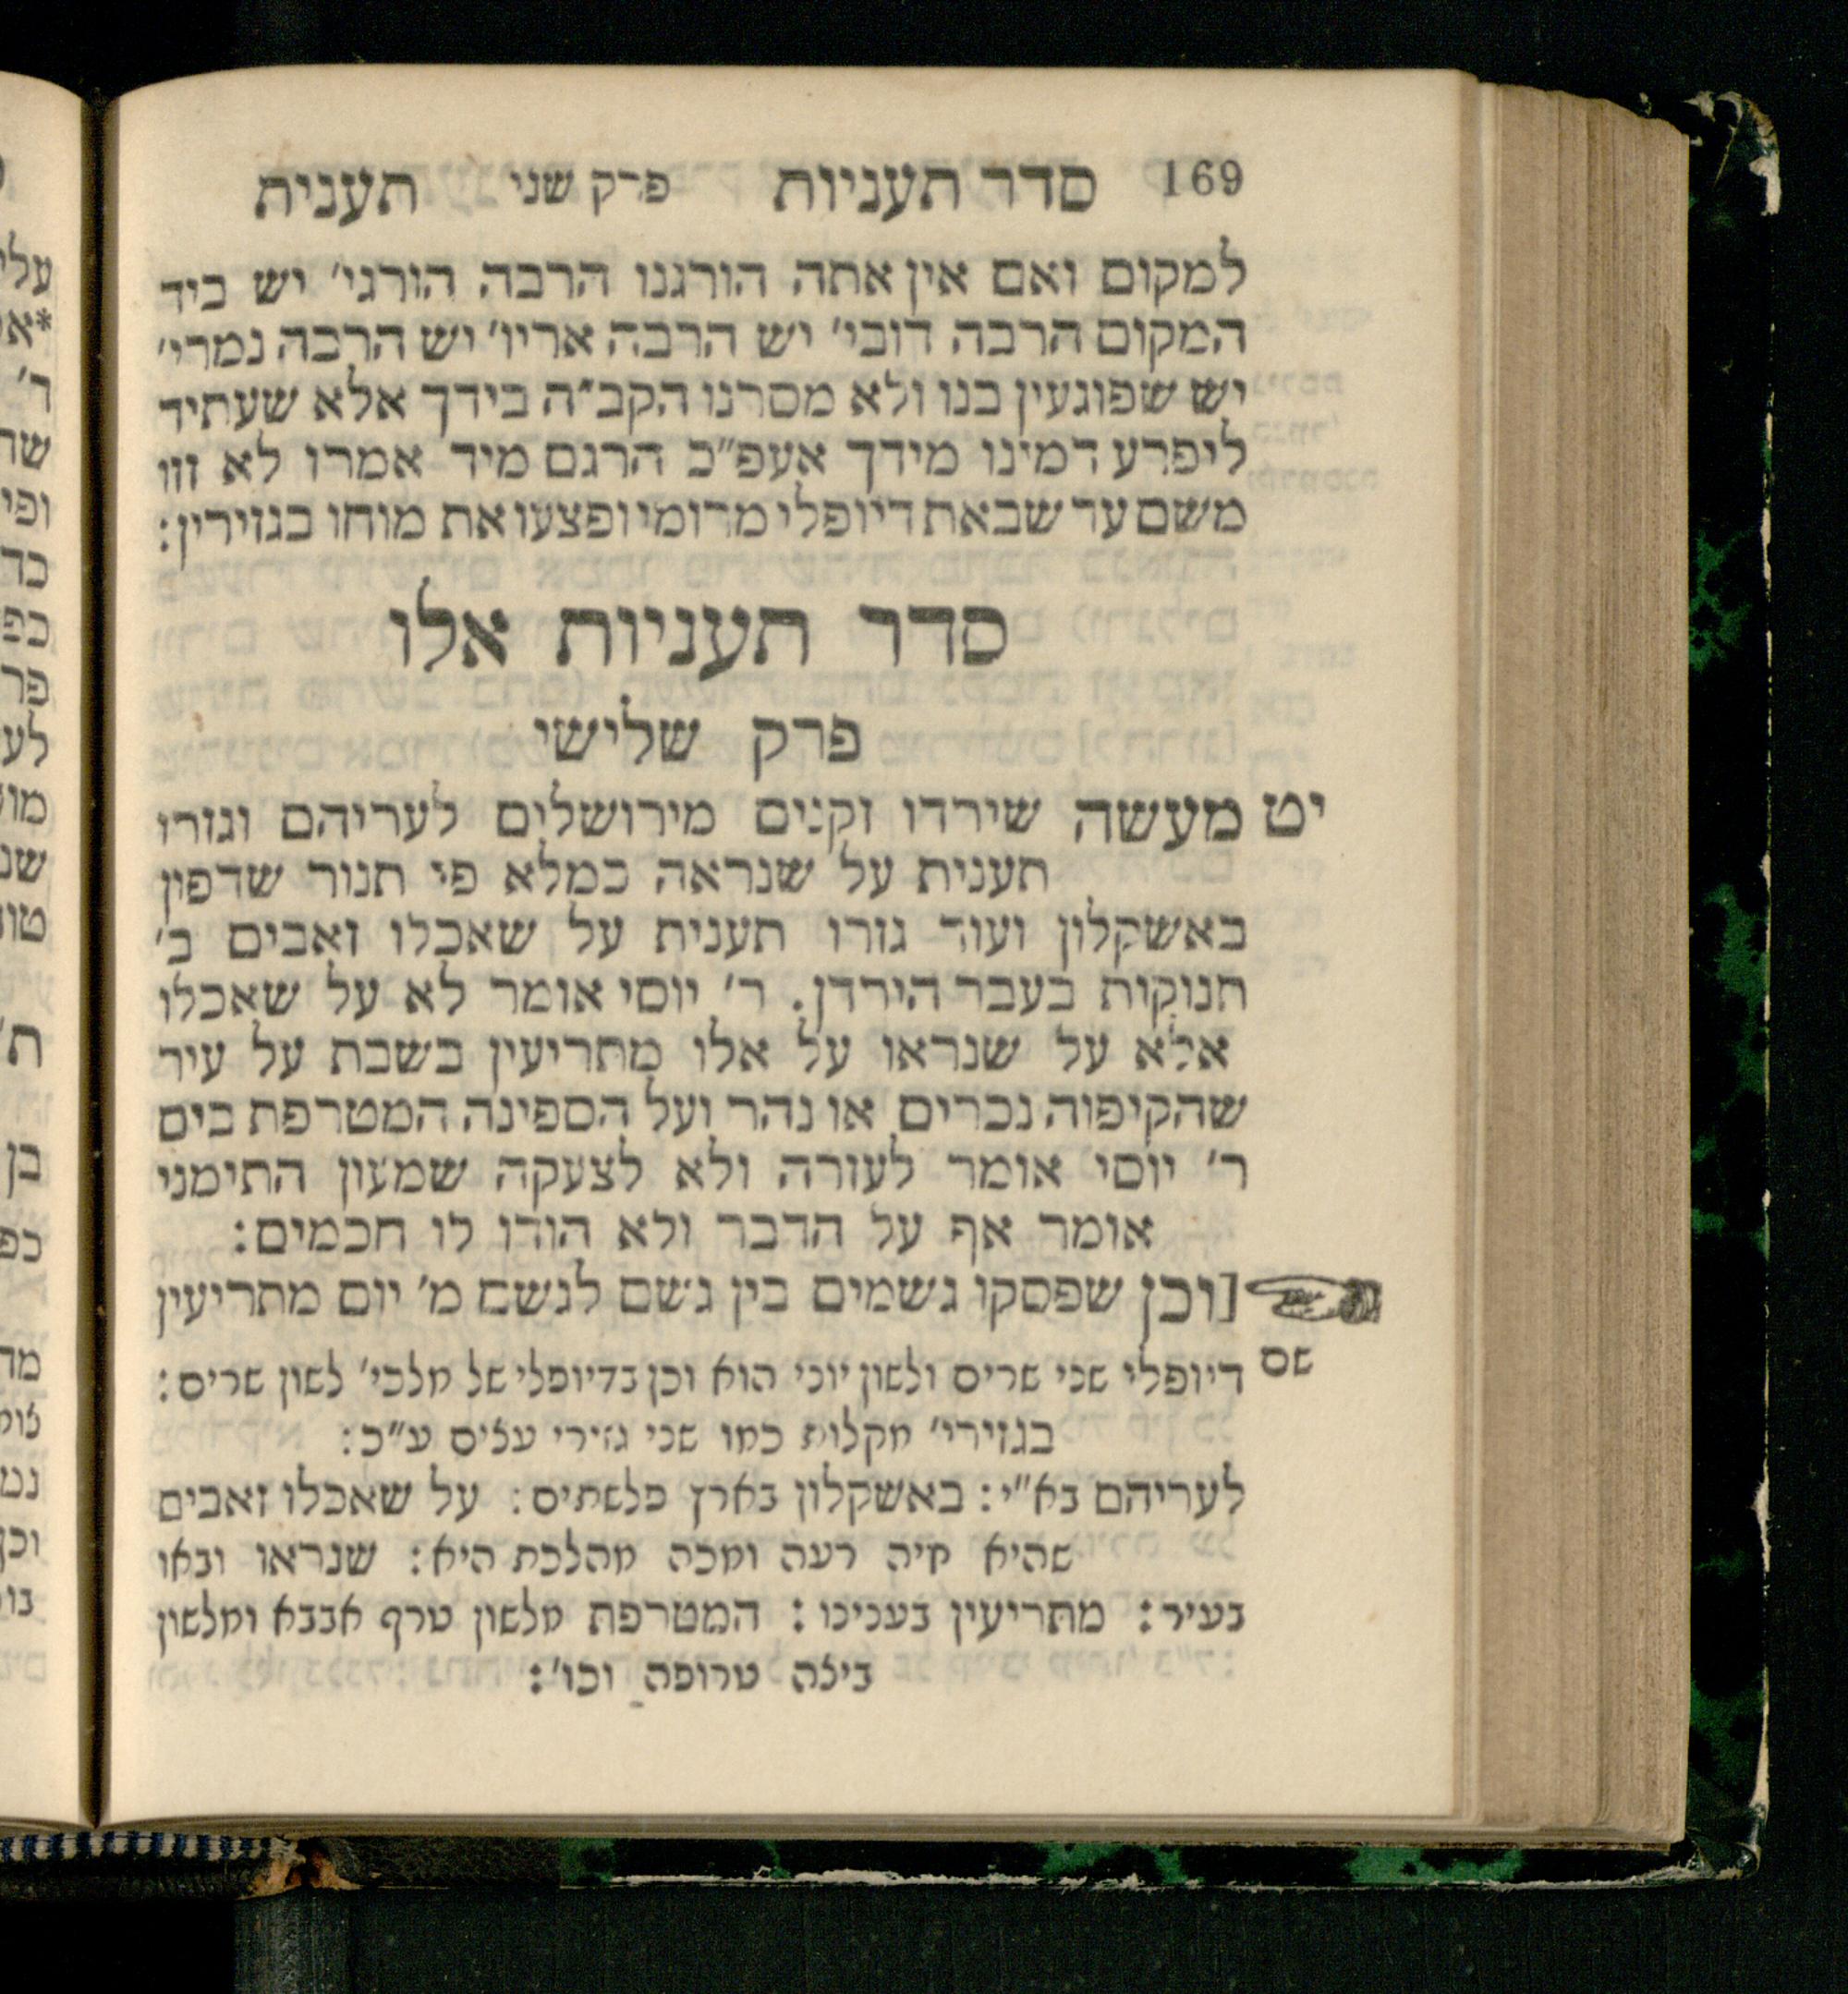 169 סדר תעניות פרק שני תענית
למקום ואם אין אתה הורגנו הרבה הורגי׳ יש ביד
המקום הרבה דובי׳ יש הרבה אריו׳ יש הרבה נמרי׳
יש שפוגעין בנו ולא מסרנו הקב״ה בידך אלא שעתיד
ליפרע דמינו מידך אעפ״כ הרגם מיד אמרו לא זזו
משם עד שבאת דיופלי מרומי ופצעו את מוחו בגזירין:
סדר תעניות אלו
פרק שלישי
יט מעשה שירדו זקנים מירושלים לעריהם וגזרו
תענית על שנראה כמלא פי תנור שדפון
באשקלון ועוד גזרו תענית על שאכלו זאבים ב׳
תנוקות בעבר הירדן. ר׳ יוסי אומר לא על שאכלו
אלא על שנראו על אלו מתריעין בשבת על עיר
שהקיפוה נכרים או נהר ועל הספינה המטרפת בים
ר׳ יוסי אומר לעזרה ולא לצעקה שמעון התימני
אומר אף על הדבר ולא הודו לו חכמים:
[וכן שפסקו גשמים בין גשם לגשם מ׳ יום מתריעין
שם דיופלי שני שרים ולשון יוני הוא וכן בדיופלי של מלכי׳ לשון שרים:
בגזירי׳ מקלות כמו שני גזירי עצים ע״כ:
לעריהם בא״י: באשקלון בארץ פלשתים: על שאכלו זאבים
שהיא חיה רעה ומכה מהלכת היא: שנראו ובאו
בעיר: מתריעין בענינו: המטרפת מלשון טרף אבבא ומלשון
ביצה טרופה וכו׳: